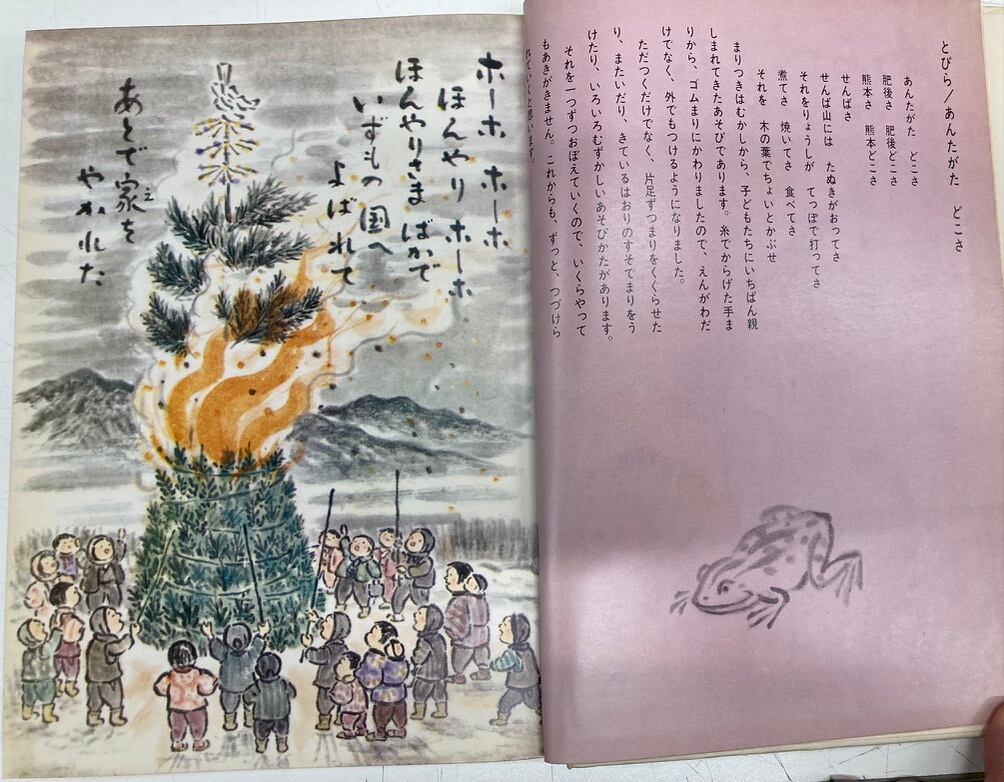 とびら/あんたがた どこさ
あんたがた どこさ
肥後さ 肥後どこさ
熊本さ 熊本どこさ
せんばさ
せんば山には たぬきがおってさ
それをりょうしが てっぽで打ってさ
煮てさ 焼いてさ 食べてさ
それを 木の葉でちょいとかぶせ
まりつきはむかしから、子どもたちにいちばん親
しまれてきたあそびであります。糸でからげた手ま
りから、ゴムまりにかわりましたので、えんがわだ
けでなく、外でもつけるようになりました。
ただつくだけでなく、片足ずつまりをくぐらせた
り、またいだり、きているはおりのすそでまりをう
けたり、いろいろむずかしいあそびかたがあります。
それを一つずつおぼえていくので、いくらやって
もあきがきません。これからも、ずっと、つづけら
れていくと思います。
ホーホ ホーホ
ほんやり ホーホ
ほんやりさま ばかで
いずもの 国へ
よばれて
あとで家を
え
やかれた